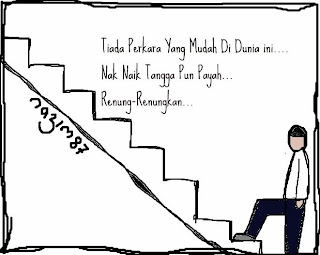 Tiada Perkara Yang Mudah Di Dunia ini....
Nak Naik Tangga Pun Payah...
Renung-Renungkan...
nazim87